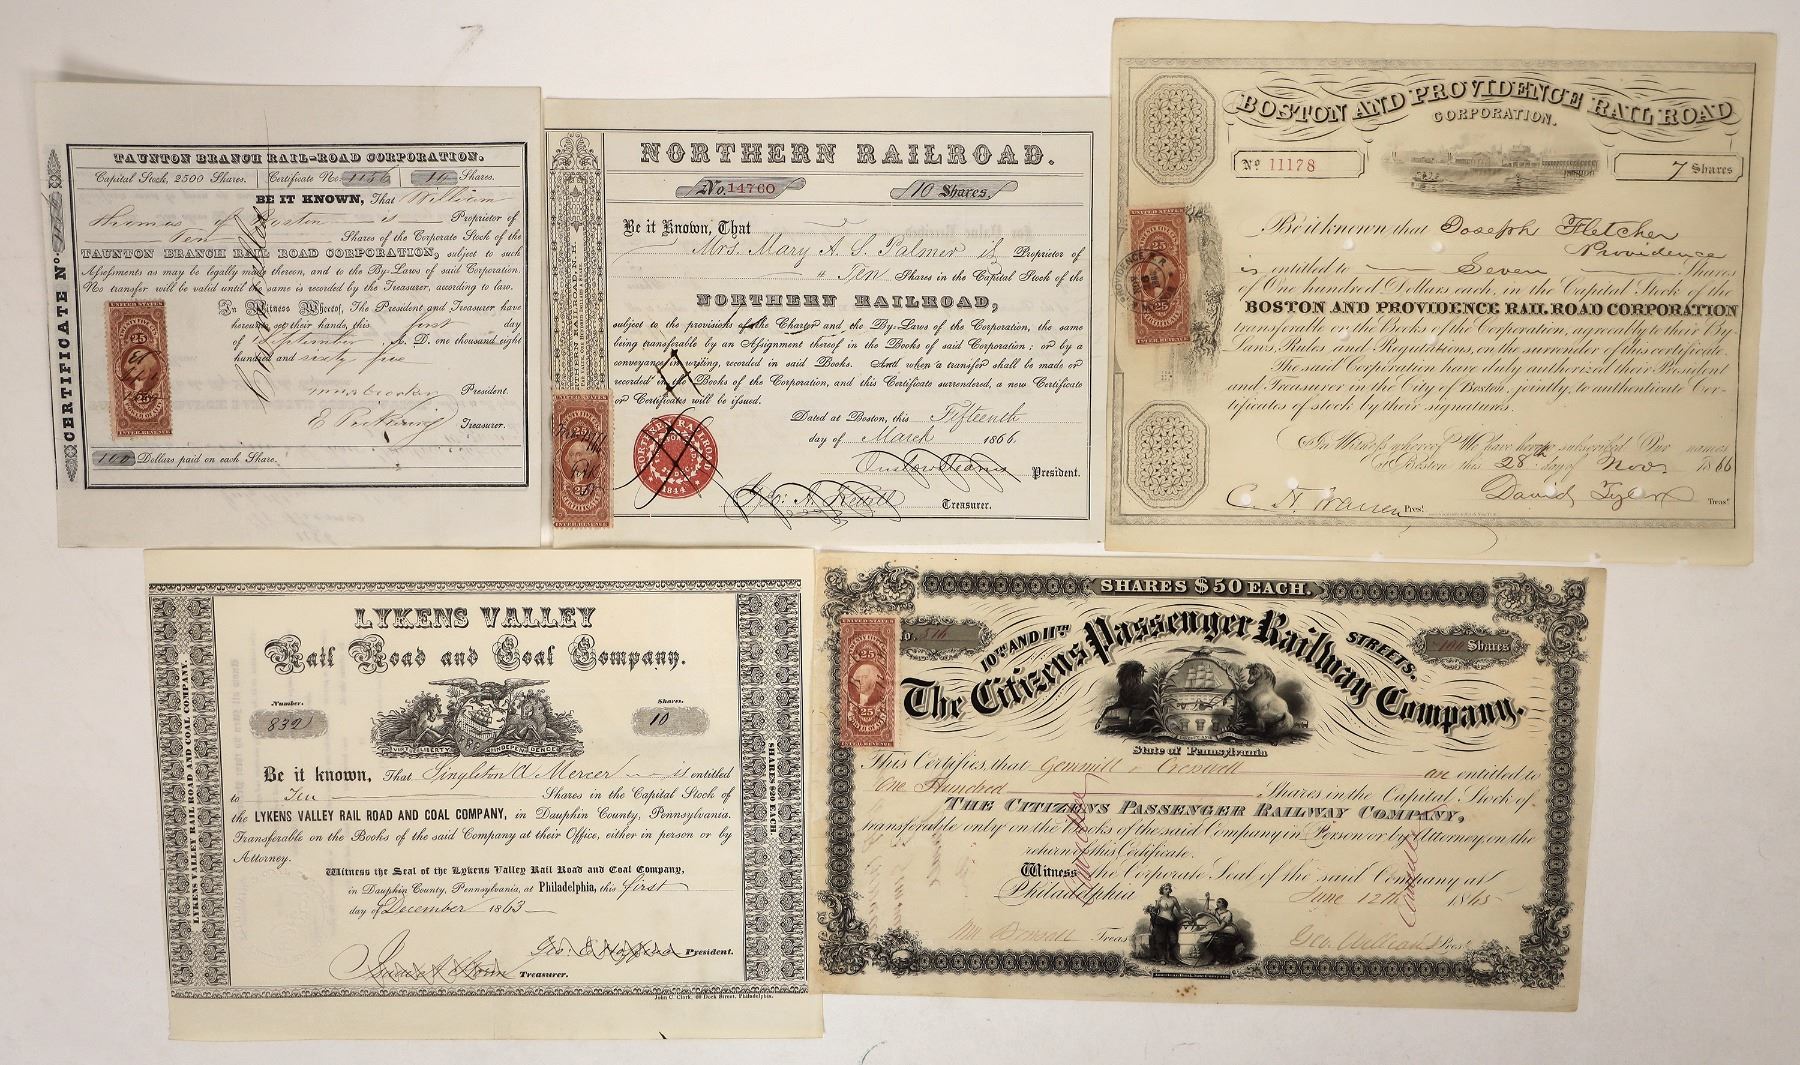 TAUNTON BRANCH RAIL-ROAD CORPORATION.
Capital Stock, 2500 Shares. Certificate No. 1156 10 Shares.
BE IT KNOWN, That William
Thomas of Boston is Proprietor of
Ten Shares of the Corporate Stock of the
TAUNTON BRANCH RAIL ROAD CORPORATION, subject to such
Assessments as may be legally made thereon, and to the By-Laws of said Corporation.
No transfer will be valid until the same is recorded by the Treasurer, according to law.
In Witness Whereof, The President and Treasurer have
hereunto set their hands, this first day
of September A. D. one thousand eight
hundred and sixty five
President.
Treasurer.
100 Dollars paid on each Share.
CERTIFICATE No.
UNITED STATES
25
INTER. REVENUE
NORTHERN RAILROAD.
No. 14760 10 Shares.
Be it Known, That
Mrs. Mary A. G. Palmer is Proprietor of
" Ten Shares in the Capital Stock of the
NORTHERN RAILROAD,
subject to the provisions of the Charter and the By-Laws of the Corporation, the same
being transferable by an Assignment thereof in the Books of said Corporation; or by a
conveyance in writing, recorded in said Books. And when a transfer shall be made or
recorded on the Books of the Corporation, and this Certificate surrendered, a new Certificate
or Certificates will be issued.
Dated at Boston, this Fifteenth
day of March 1866.
President.
Treasurer.
NORTHERN RAILROAD
1844
UNITED STATES
25
INTER. REVENUE
BOSTON AND PROVIDENCE RAIL ROAD
CORPORATION.
No 11178 7 Shares
Be it known that Joseph Fletcher
Providence
is entitled to Seven Shares
of One hundred Dollars each, in the Capital Stock of the
BOSTON AND PROVIDENCE RAIL ROAD CORPORATION
transferable on the Books of the Corporation, agreeably to their By
Laws, Rules and Regulations, on the surrender of this certificate.
The said Corporation have duly authorized their President
and Treasurer in the City of Boston, jointly, to authenticate Cer-
tificates of stock by their signatures.
In Witness whereof We have here subscribed Our names
at Boston this 28 day of Nov. 1866
David Tyler Treasr.
C. H. Warren Prest.
25
LYKENS VALLEY
Rail Road and Coal Company.
Number. Shares.
8391 10
VIRTUE LIBERTY INDEPENDENCE
Be it known, That Singleton A Mercer is entitled
to Ten Shares in the Capital Stock of
the LYKENS VALLEY RAIL ROAD AND COAL COMPANY, in Dauphin County, Pennsylvania.
Transferable on the Books of the said Company at their Office, either in person or by
Attorney.
Witness the Seal of the Lykens Valley Rail Road and Coal Company,
in Dauphin County, Pennsylvania, at Philadelphia, this first
day of December 1863
President.
Treasurer.
John C. Clark, 68 Dock Street, Philadelphia.
LYKENS VALLEY RAIL ROAD AND COAL COMPANY.
SHARES $20 EACH.
SHARES $50 EACH.
10TH AND 11TH STREETS.
The Citizens Passenger Railway Company.
No. 316 100 Shares
State of Pennsylvania
This Certifies, that Gemmill & Creswell are entitled to
One Hundred Shares in the Capital Stock of
THE CITIZENS PASSENGER RAILWAY COMPANY,
transferable only on the Books of the said Company in Person or by Attorney, on the
return of this Certificate.
Witness the Corporate Seal of the said Company at
Philadelphia June 12th 1865
Treasr
Prest
Cancelled
UNITED STATES
25
INTER. REVENUE